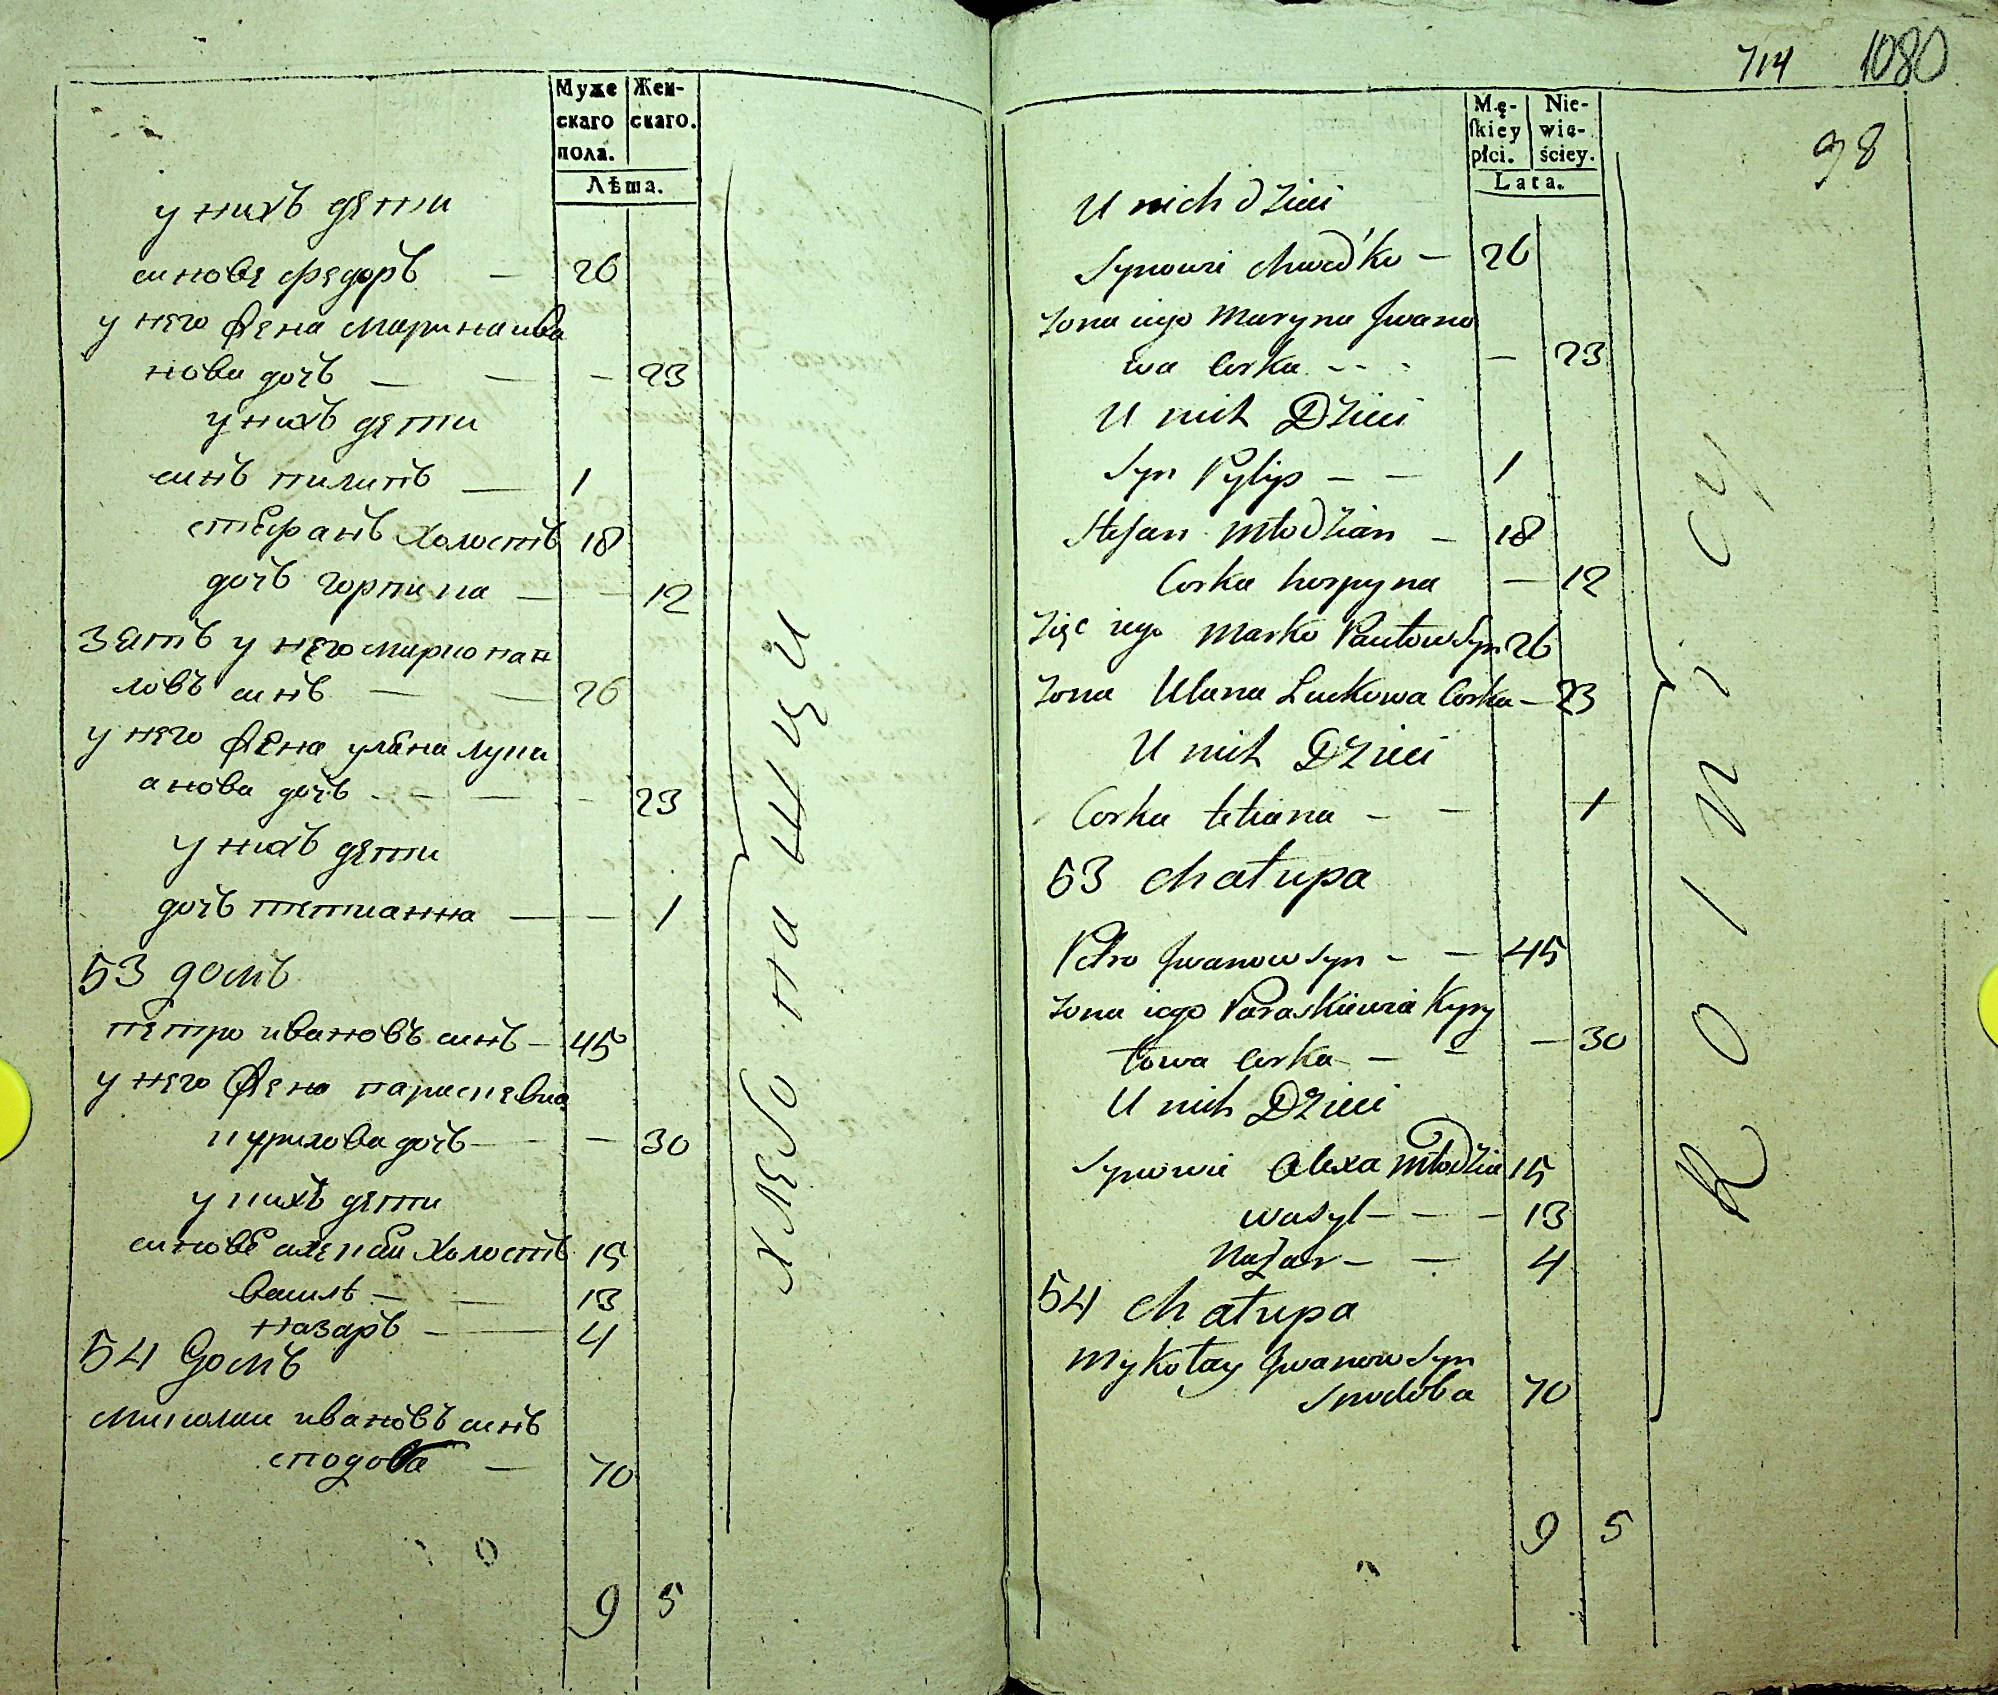 Муже
скаго
пола.
Жен-
скаго.
Лѣта.
у нихъ дети
синове федоръ — 26
у него жена марина ива
нова дочъ — — — 23
у нихъ дети
синъ пилипъ — 1
стефанъ холостъ 18
дочъ горпина — — 12
зятъ у него марко пав
ловъ синъ — — 26
у него жена улана луки
анова дочъ — — — — 23
у нихъ дети
дочъ тетианна — — 1
53 домъ
петро ивановъ синъ — 45
у него жена параскевиа
курилова дочъ — — — 30
у нихъ дети
синове алексаи холостъ 15
василь — — 13
назаръ — — 4
54 домъ
миколаи ивановъ синъ
сподоба — 70
9 5
хлебопашци
714 1080
98
Mę-
ſkiey
płci.
Nie-
wie-
ściey.
Lata.
U nich dzieci
Synowie chwedko — 26
Żona iego Maryna Jwano
wa Corka - - - — 23
U nich Dzieci
Syn Pylip — — 1
Stefan młodzian — 18
Corka horpyna — 12
Zięć iego Marko Pawłow Syn 26
Żona Ulana Łukowa Corka — 23
U nich Dzieci
Corka tetiana — — 1
53 chałupa
Petro Jwanow Syn - — 45
Żona iego Paraskiewia Kyry
łowa Corka — - — 30
U nich Dzieci
Synowie Alexa młodzia 15
wasyl — - — 13
Nazar — — 4
54 chałupa
Mykołay Jwanow Syn
Spodoba 70
9 5
Rolnicy